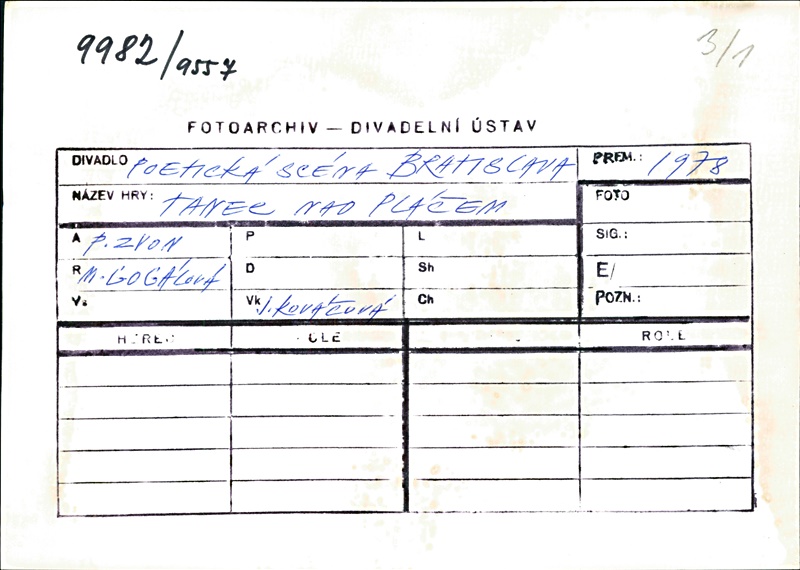 9982/9557
3/1
FOTOARCHIV — DIVADELNÍ ÚSTAV
DIVADLO POETICKÁ SCÉNA BRATISLAVA PREM.: 1978
NÁZEV HRY: TANEC NAD PLAČEM FOTO
A P. ZVON P L SIG.:
R M. GOGÁLOVÁ D Sh E/
Vk J. KOVÁČOVÁ Ch POZN.:
HEREC ROLE